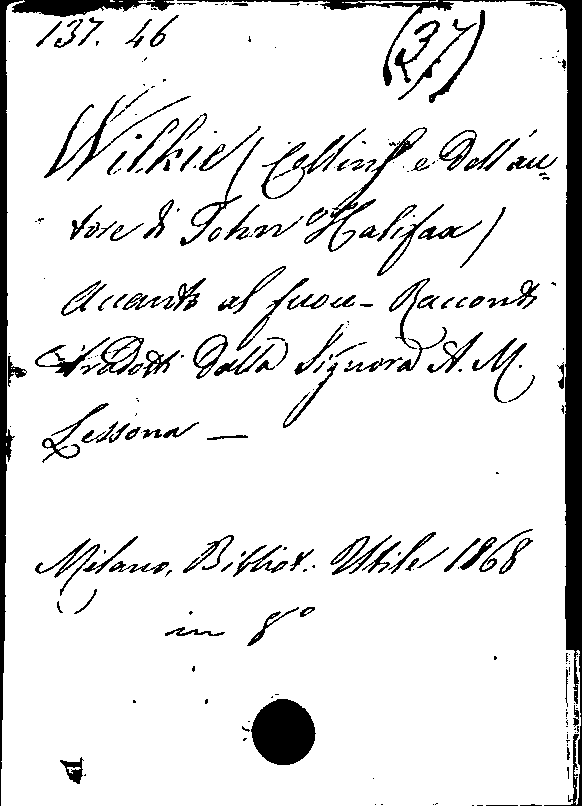 137. 46 (37)
Wilkie (Collins e dell'au-
tore di John Halifax)
Accanto al fuoco - Racconti
tradotti dalla Signora A. M.
Lessona —
Milano, Bibliot. Utile 1868
in 8°